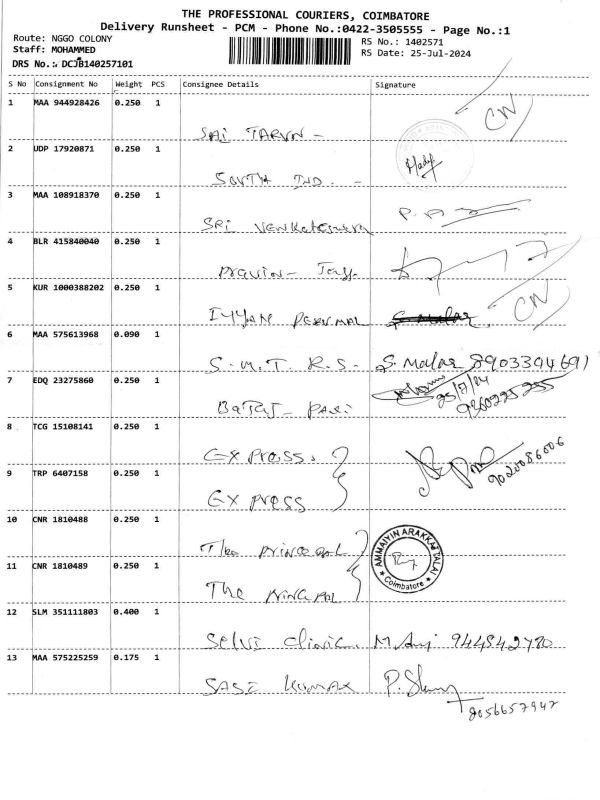 THE PROFESSIONAL COURIERS, COIMBATORE
Delivery Runsheet - PCM - Phone No.:0422-3505555 - Page No.:1
Route: NGGO COLONY RS No.: 1402571
Staff: MOHAMMED RS Date: 25-Jul-2024
DRS No.: DCJB140257101
S No Consignment No Weight PCS Consignee Details Signature
1 MAA 944928426 0.250 1
SAI TARUN - CN
2 UDP 17920871 0.250 1
SOUTH IND. -
3 MAA 108918370 0.250 1
SRI Venkateswara
4 BLR 415840040 0.250 1
Pravin -
5 KUR 1000388202 0.250 1 CN
IYYAN PERUMAL S. Malar
6 MAA 575613968 0.090 1
S. M. T. R. S. - S. Malar 8903394691
7 EDQ 23275860 0.250 1 25/7/24
8 TCG 15108141 0.250 1
Express.
9 TRP 6407158 0.250 1
Express
10 CNR 1810488 0.250 1
The Principal
AMMAIYIN ARAKKATTALAI
Coimbatore
11 CNR 1810489 0.250 1
The Principal
12 SLM 351111803 0.400 1
Selvi Clinic.
13 MAA 575225259 0.175 1
SASI KUMAR
9056657942